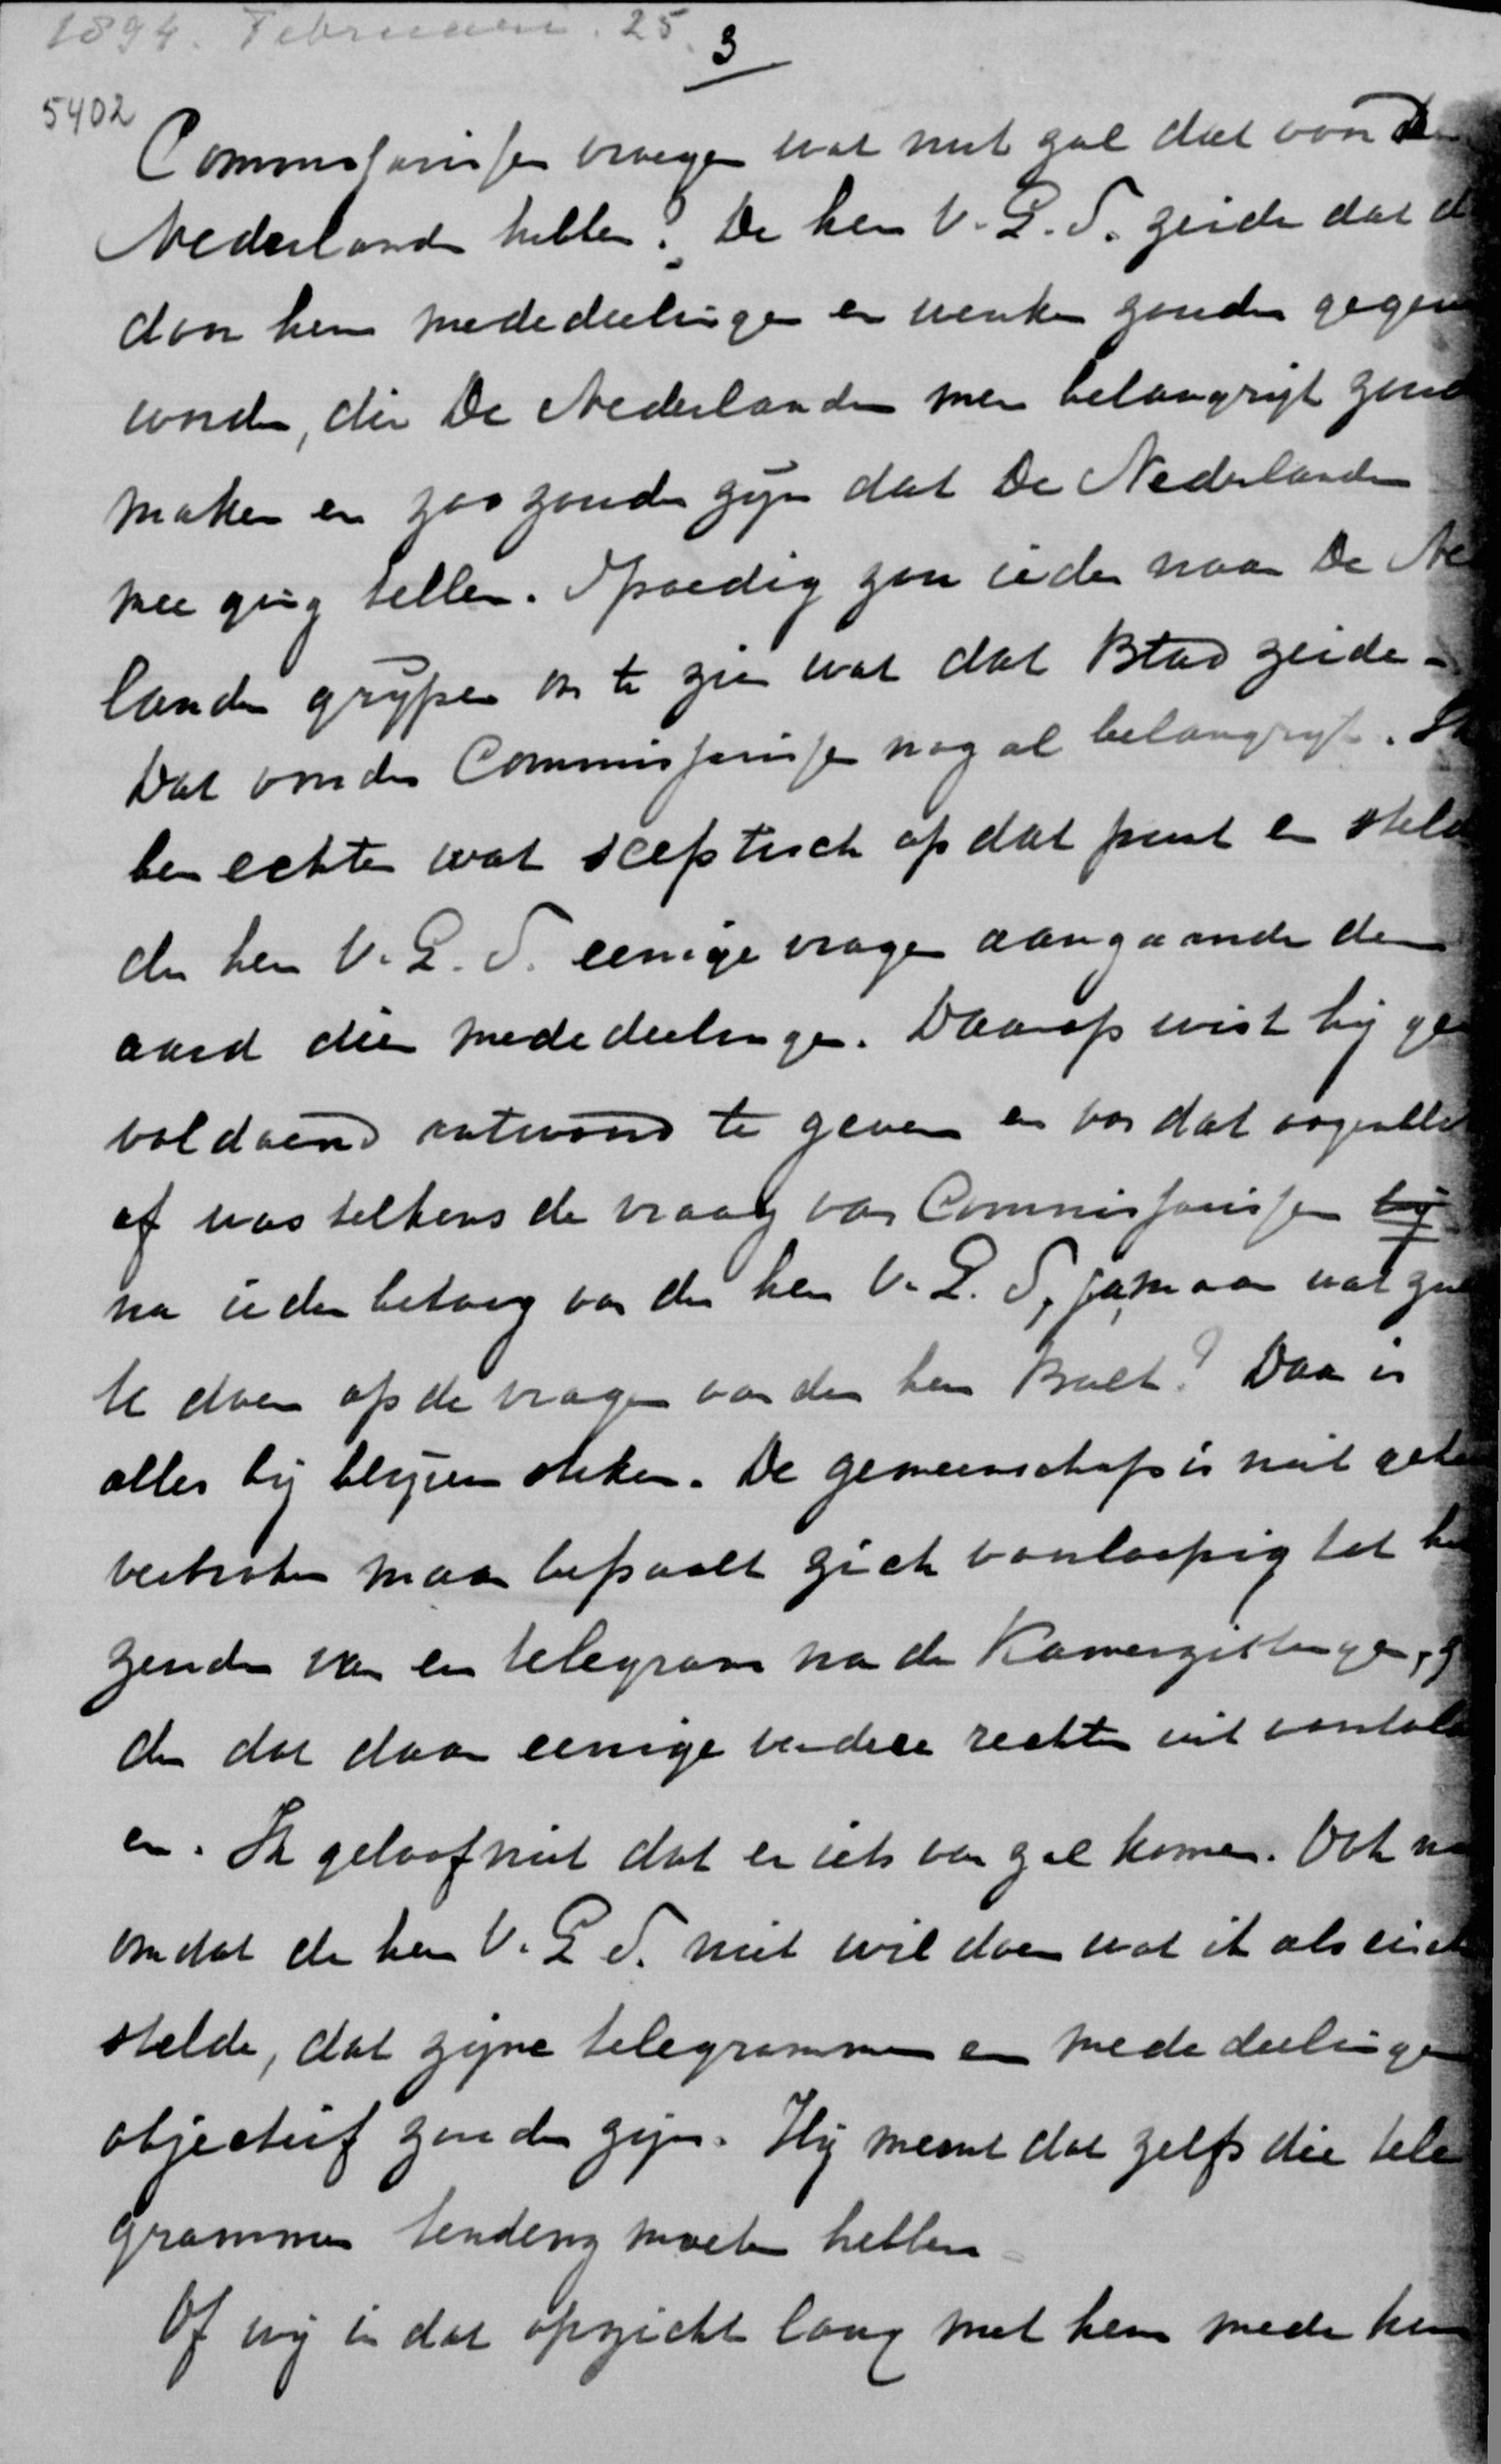 1894. Februari. 25.
3
5402
Commissarissen vroegen wat nut zal dat voor De
Nederlander hebben? De heer V. G. S. zeide dat d
door hem mededeelingen en wenken zouden gegeven
worden, die De Nederlander meer belangrijk zoud
maken en zoo zouden zijn dat De Nederlander
mee ging tellen. Spoedig zou ieder naar De Ne
lander grijpen om te zien wat dat Blad zeide -
Dat vonden Commissarissen nog al belangrijk. Ik
ben echter wat sceptisch op dat punt en stelde
den heer V. G. S. eenige vragen aangaande den
aard dier mededeelingen. Daarop wist hij geen
voldoend antwoord te geven en van dat oogenblik
af was telkens de vraag van Commissarissen bij
na ieder betoog van den heer V. G. S, ja, maar wat zul
U doen op de vragen van den heer ? Daar is
alles bij blijven steken. De gemeenschap is niet gehe
verbroken maar bepaalt zich voorloopig tot het
zenden van een telegram na de Kamerzittingen, z
der dat daar eenige verdere rechten uit voortvloei
en. Ik geloof niet dat er iets van zal komen. Ook n
omdat de heer V. G. S. niet wil doen wat ik als eisch
stelde, dat zijne telegrammen en mededeelingen
objectief zouden zijn. Hij meent dat zelfs die tele
grammen tendenz moeten hebben -
Of wij in dat opzicht lang met hem mede kun